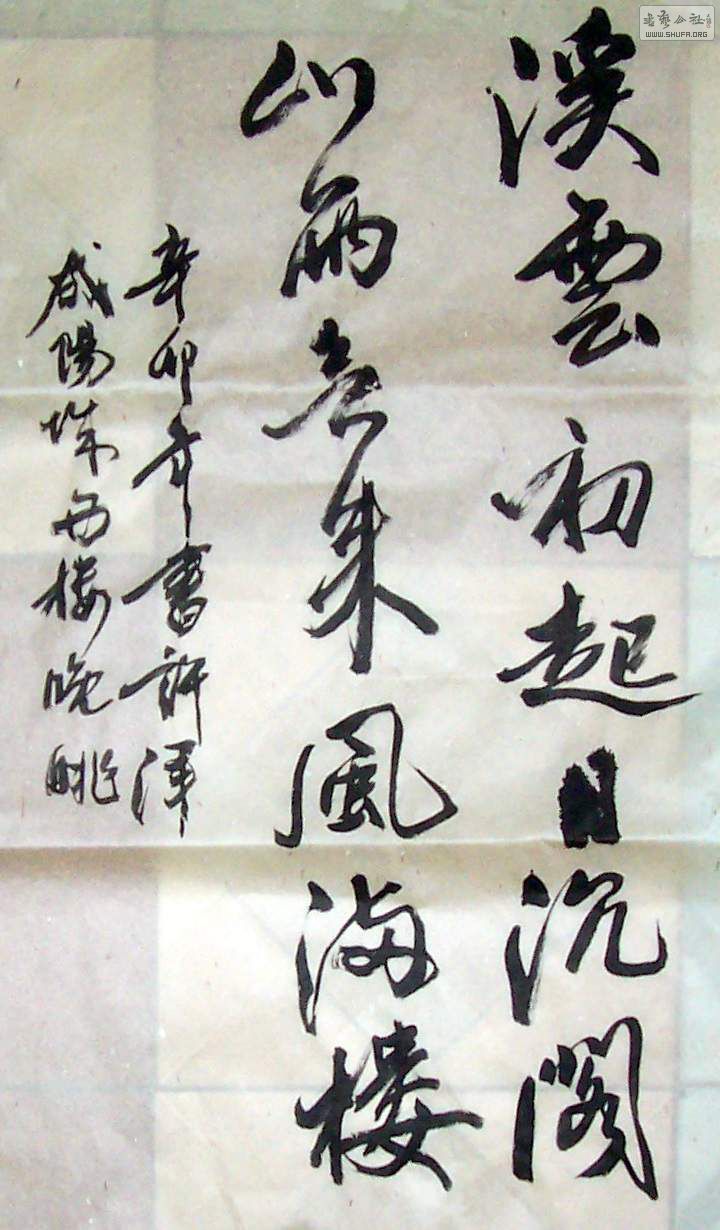 書藝公社
WWW.SHUFA.ORG
溪雲初起日沉閣
山雨欲来風满樓
辛卯年書許渾
咸陽城西楼晚眺